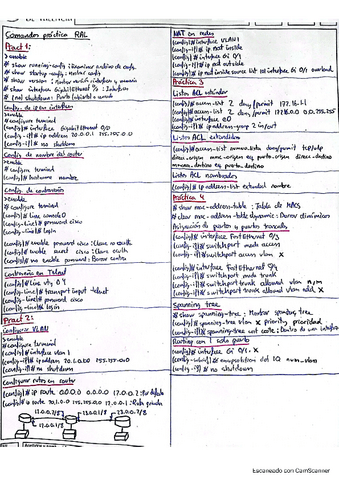 Comandos práctica RAL
Pract 1:
> enable
# show running-config : Examinar archivo de config.
# show startup-config : startup config
# show version : Revisar versión software y memoria
# show interface GigabitEthernet % : Interfaces
Config. de la interfaces
> enable
# configure terminal
(config)# interface GigabitEthernet 0/0
(config-if)# ip address 20.1.0.1 255.255.0.0
(config-if)# no shutdown
Config. de nombre del router
> enable
# configure terminal
(config)# hostname nombre
Config. de contraseña
> enable
# configure terminal
(config)# line console 0
(config-line)# password cisco
(config-line)# login
(config)# enable password cisco : Clave no cauth
(config)# enable secret cisco : Clave cauth
(config)# no enable password : Borrar contra
Contraseña en Telnet
(config)# line vty 0 4
(config-line)# transport input telnet
(config-line)# password cisco
(config-line)# login
Pract 2:
Configurar VLAN
> enable
# configure terminal
(config)# interface vlan 1
(config-if)# ip address 20.1.0.10 255.255.0.0
(config-if)# no shutdown
Configurar rutas en router
(config)# ip route 0.0.0.0 0.0.0.0 17.0.0.2 : Por defecto
(config)# ip route 20.1.0.0 255.255.0.0 17.0.0.1 : Ruta
NAT en redes
(config)# interface VLAN1
(config-if)# ip nat inside
(config)# interface Gi 0/1
(config-if)# ip nat outside
(config)# ip nat inside source list 101 interface Gi 0/1 overload
Práctica 3
Listas ACL estándar
(config)# access-list 2 deny/permit 172.16.1.1
(config)# access-list 2 deny/permit 172.16.0.0 0.0.255.255
(config)# interface 0.0
(config-if)# ip address-group 2 in/out
Listas ACL extendidas
(config)# access-list numero.lista deny/permit tcp/udp
direc.origen masc.origen eq puerto.origen direcc.destino
mascara.destino eq puerto.destino
Listas ACL nombradas
(config)# ip address-list extended nombre
Práctica 4
# show mac-address-table : Tabla de MACs
# clear mac-address-table dynamic : Borrar dinámicas
Asignación de puertos y puertos troncales
(config)# interface FastEthernet 0/3
(config-if)# switchport mode access
(config-if)# switchport access vlan x
(config)# interface FastEthernet 0/4
(config-if)# switchport mode trunk
(config-if)# switchport trunk allowed vlan n,m
(config-if)# switchport trunk allowed vlan add x
Spanning tree
# show spanning-tree : Mostrar spaning tree
(config)# spanning-tree vlan x priority prioridad
(config-if)# spanning-tree cost coste : Dentro de una interfaz
Routing con 1 solo puerto
(config)# interface Gi 0/1.x
(config-subif)# encapsulation dot1Q num_vlan
(config-if)# no shutdown
Escaneado con CamScanner